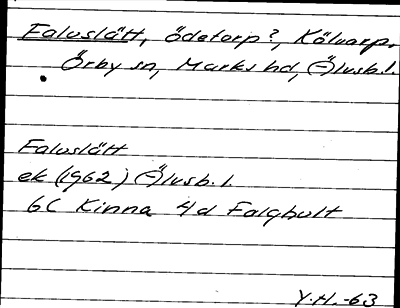 Faluslätt, ödetorp?, Kälvarp,
Örby sn, Marks hd, Älvsb.l.
Faluslätt
ek (1962) Älvsb.l.
6C Kinna 4d Falghult
Y.H.-63